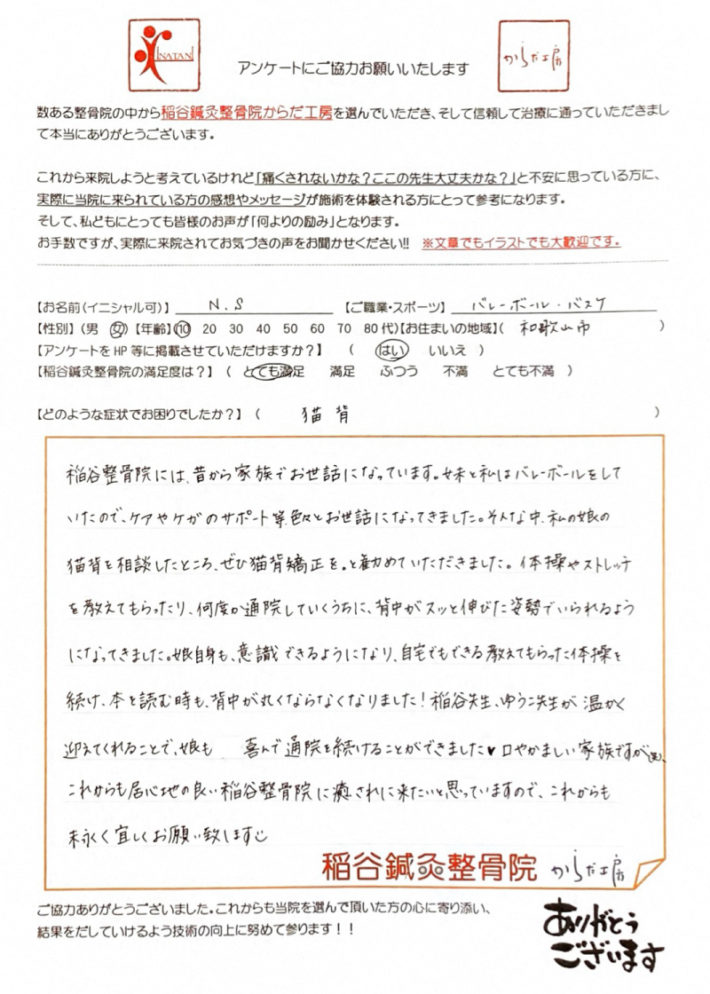 INATANI
アンケートにご協力お願いいたします
からだ工房
数ある整骨院の中から稲谷鍼灸整骨院からだ工房を選んでいただき、そして信頼して治療に通っていただきまし
て本当にありがとうございます。
これから来院しようと考えているけれど「痛くされないかな？ここの先生大丈夫かな？」と不安に思っている方に、
実際に当院に来られている方の感想やメッセージが施術を体験される方にとって参考になります。
そして、私どもにとっても皆様のお声が「何よりの励み」となります。
お手数ですが、実際に来院されてお気づきの声をお聞かせください!! ※文章でもイラストでも大歓迎です。
【お名前(イニシャル可)】 N.S 【ご職業・スポーツ】 バレーボール・バスケ
【性別】(男 女)【年齢】(10 20 30 40 50 60 70 80代)【お住まいの地域】( 和歌山市 )
【アンケートをHP等に掲載させていただけますか？】 ( はい いいえ )
【稲谷鍼灸整骨院の満足度は？】 ( とても満足 満足 ふつう 不満 とても不満 )
【どのような症状でお困りでしたか？】 ( 猫背 )
稲谷整骨院には、昔から家族でお世話になっています。妹と私はバレーボールをして
いたので、ケアやケガのサポート等色々とお世話になってきました。そんな中、私の娘の
猫背を相談したところ、ぜひ猫背矯正を。と勧めていただきました。体操やストレッチ
を教えてもらったり、何度か通院していくうちに、背中がスッと伸びた姿勢でいられるよう
になってきました。娘自身も、意識できるようになり、自宅でもできる教えてもらった体操を
続け、本を読む時も、背中が丸くならなくなりました！稲谷先生、ゆうこ先生が温かく
迎えてくれることで、娘も 喜んで通院を続けることができました♥口やかましい家族ですが
これからも居心地の良い稲谷整骨院に癒されに来たいと思っていますので、これからも
末永く宜しくお願い致します
稲谷鍼灸整骨院 からだ工房
ご協力ありがとうございました。これからも当院を選んで頂いた方の心に寄り添い、
結果をだしていけるよう技術の向上に努めて参ります！！
ありがとう
ございます